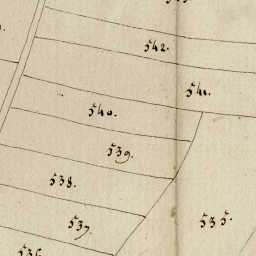 542.
541.
540.
539.
538.
535.
537.
536.